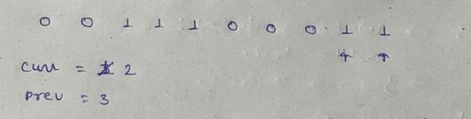 0 0 1 1 1 0 0 0 1 1
↑ ↑
curr = 2
prev = 3